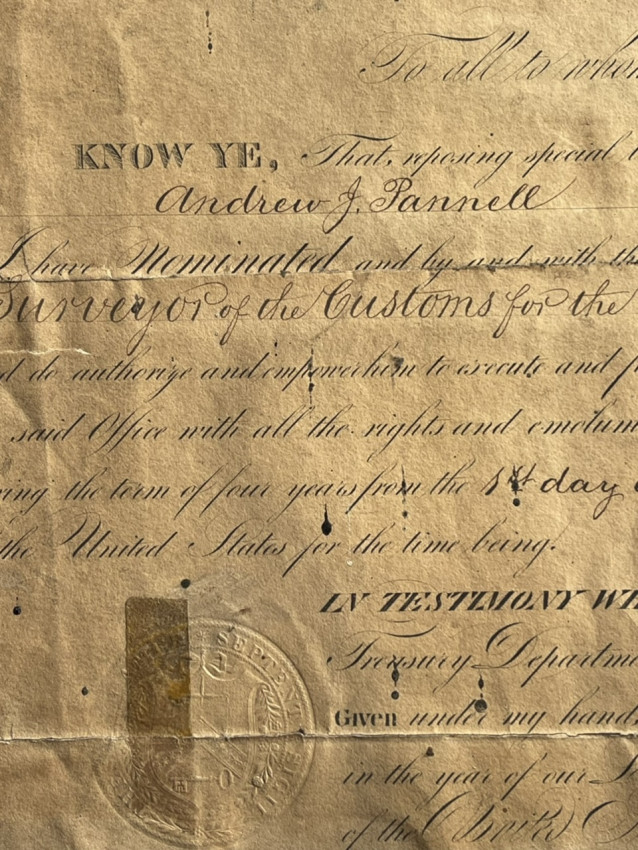 To all to whom
KNOW YE, That, reposing special
Andrew J. Pannell
I have Nominated and by and with the
Surveyor of the Customs for the
do authorize and empower him to execute and
said Office with all the rights and emolum
ing the term of four years from the 1st day
the United States for the time being.
IN TESTIMONY WH
Treasury Departme
Given under my hand,
in the year of our
of the
SEPTENT